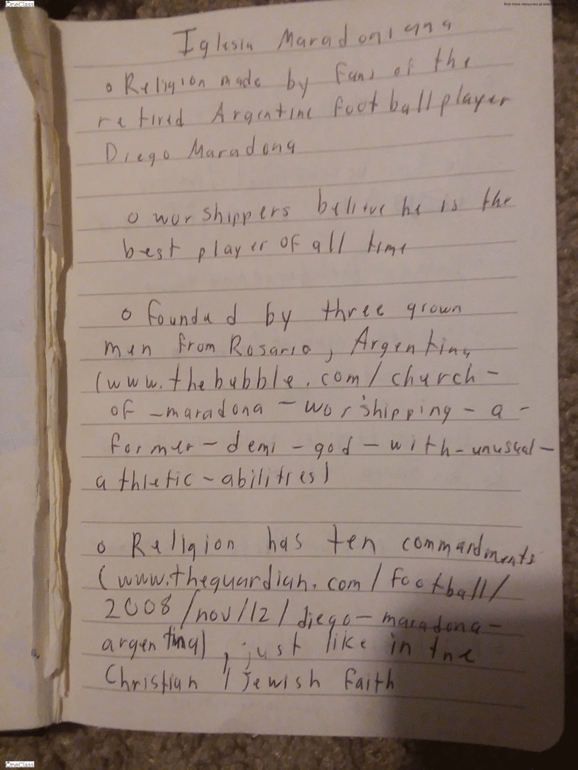 OneClass
find more resources at
Iglesia Maradoniana
o Religion made by fans of the
retired Argentine football player
Diego Maradona
o worshippers believe he is the
best player of all time
o founded by three grown
men from Rosario, Argentina
(www.thebubble.com/church-
of-maradona-worshipping-a-
former-demi-god-with-unusual-
athletic-abilities)
o Religion has ten commardments
(www.theguardian.com/football/
2008/nov/12/diego-maradona-
argentina), just like in the
Christian / Jewish faith
OneClass